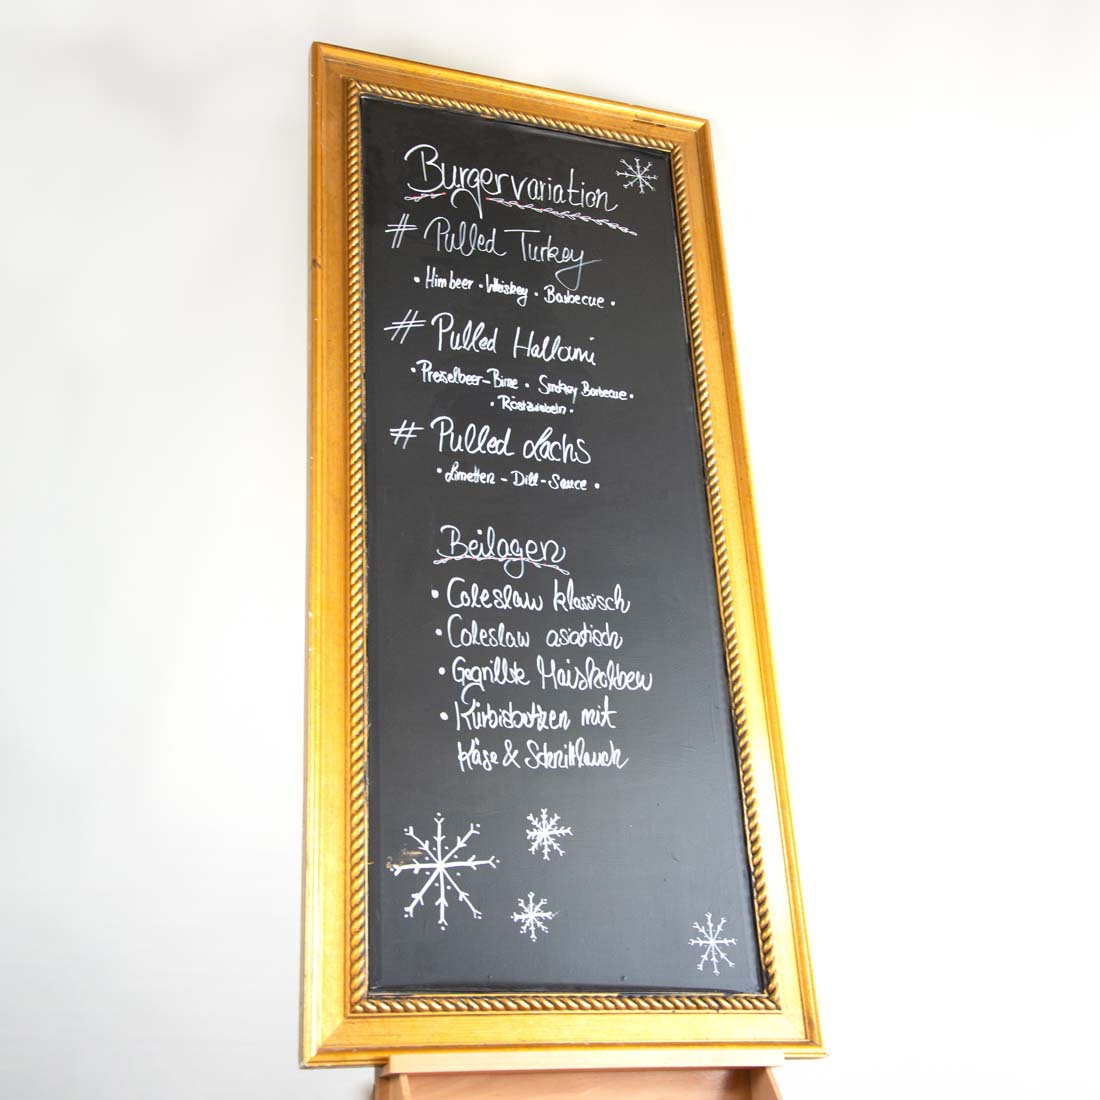 Burgervariation
# Pulled Turkey
• Himbeer • Whiskey • Barbecue •
# Pulled Halloumi
• Preiselbeer-Birne • Smokey Barbecue •
• Röstzwiebeln •
# Pulled Lachs
• Limetten - Dill - Sauce •
Beilagen
• Coleslaw klassisch
• Coleslaw asiatisch
• Gegrillte Maiskolben
• Kürbisbatzen mit
Käse & Schnittlauch